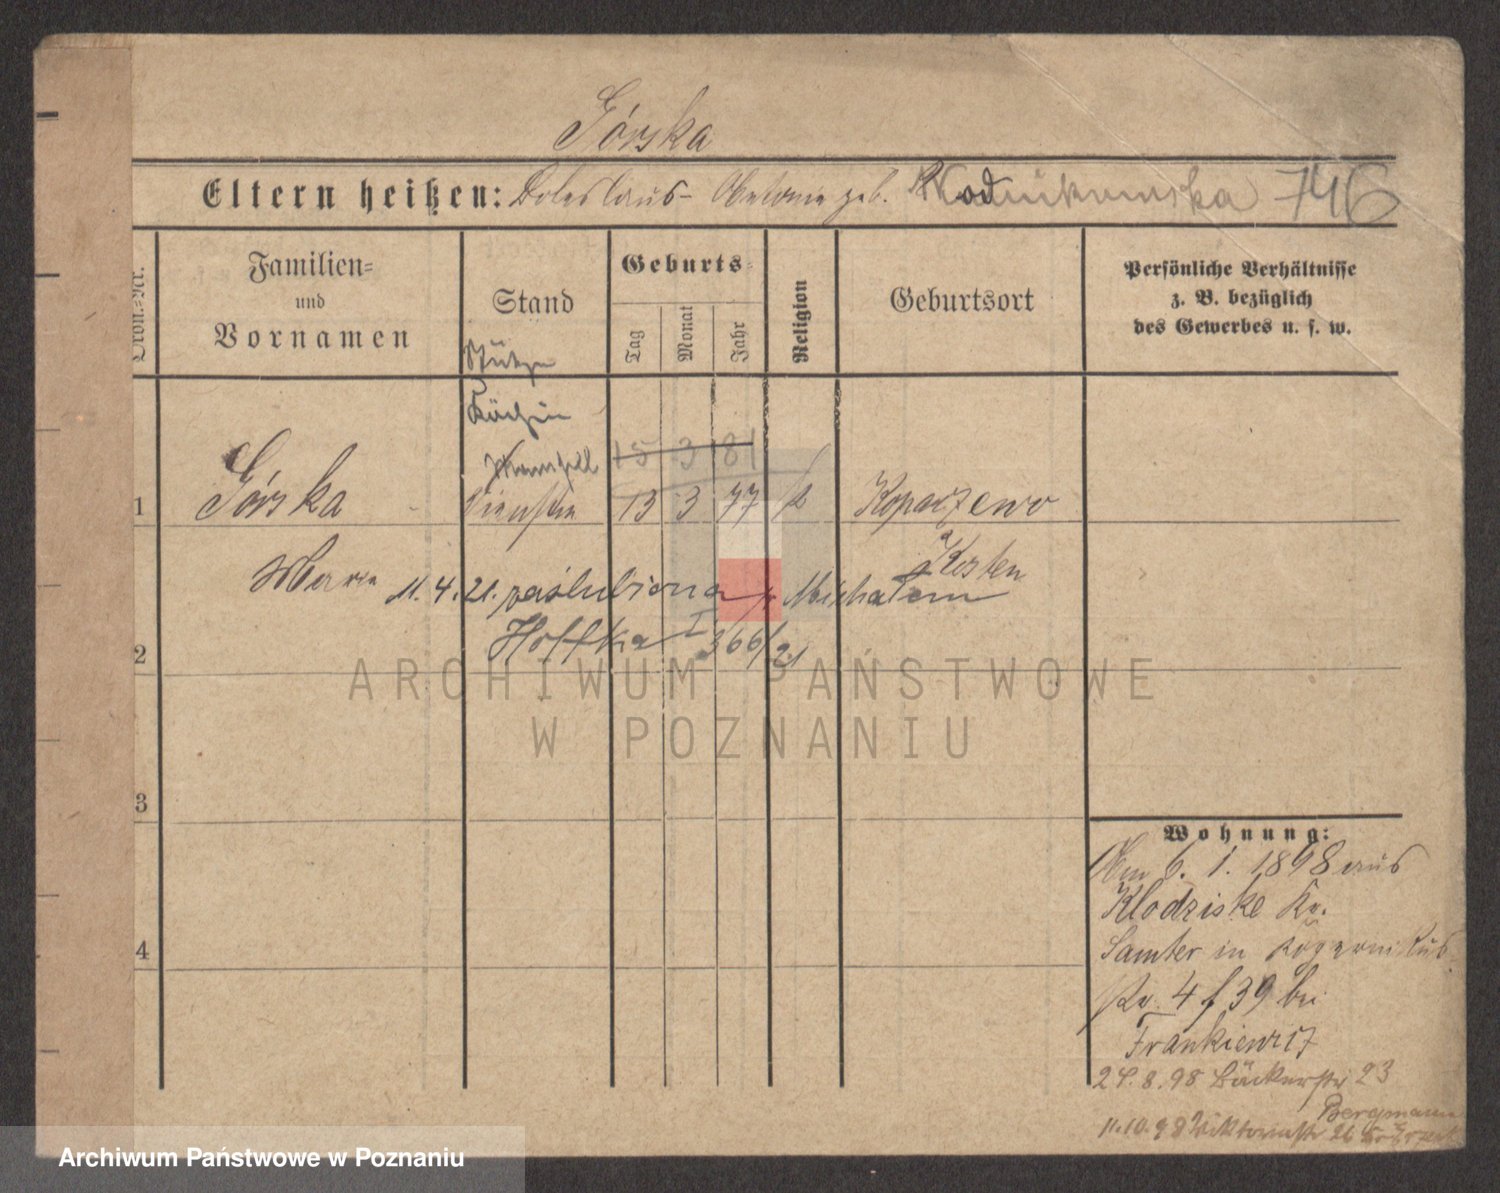 Górska
Eltern heißen: Boleslaus - Antonie geb. 746
Ordn.-Nr.
Familien-
und
Vornamen
Stand
Geburts-
Tag
Monat
Jahr
Religion
Geburtsort
Persönliche Verhältnisse
z. B. bezüglich
des Gewerbes u. s. w.
Stütze
Köchin
15 3 81
1 Górska 13 3 77 k Koparzewo
Kosten
Maria 11.4.21. zaślubiona z Michałem
Hoffka I 366/21
2
3
4
Wohnung:
Am 6. 1. 1898 aus
Klodziske Kr.
Samter in Kopernikus
str. 4 f 39 bei
Frankiewicz
24.8.98 Bäckerstr 23
Bergmann
11.10.98 Viktoriastr 26
ARCHIWUM PAŃSTWOWE
W POZNANIU
Archiwum Państwowe w Poznaniu